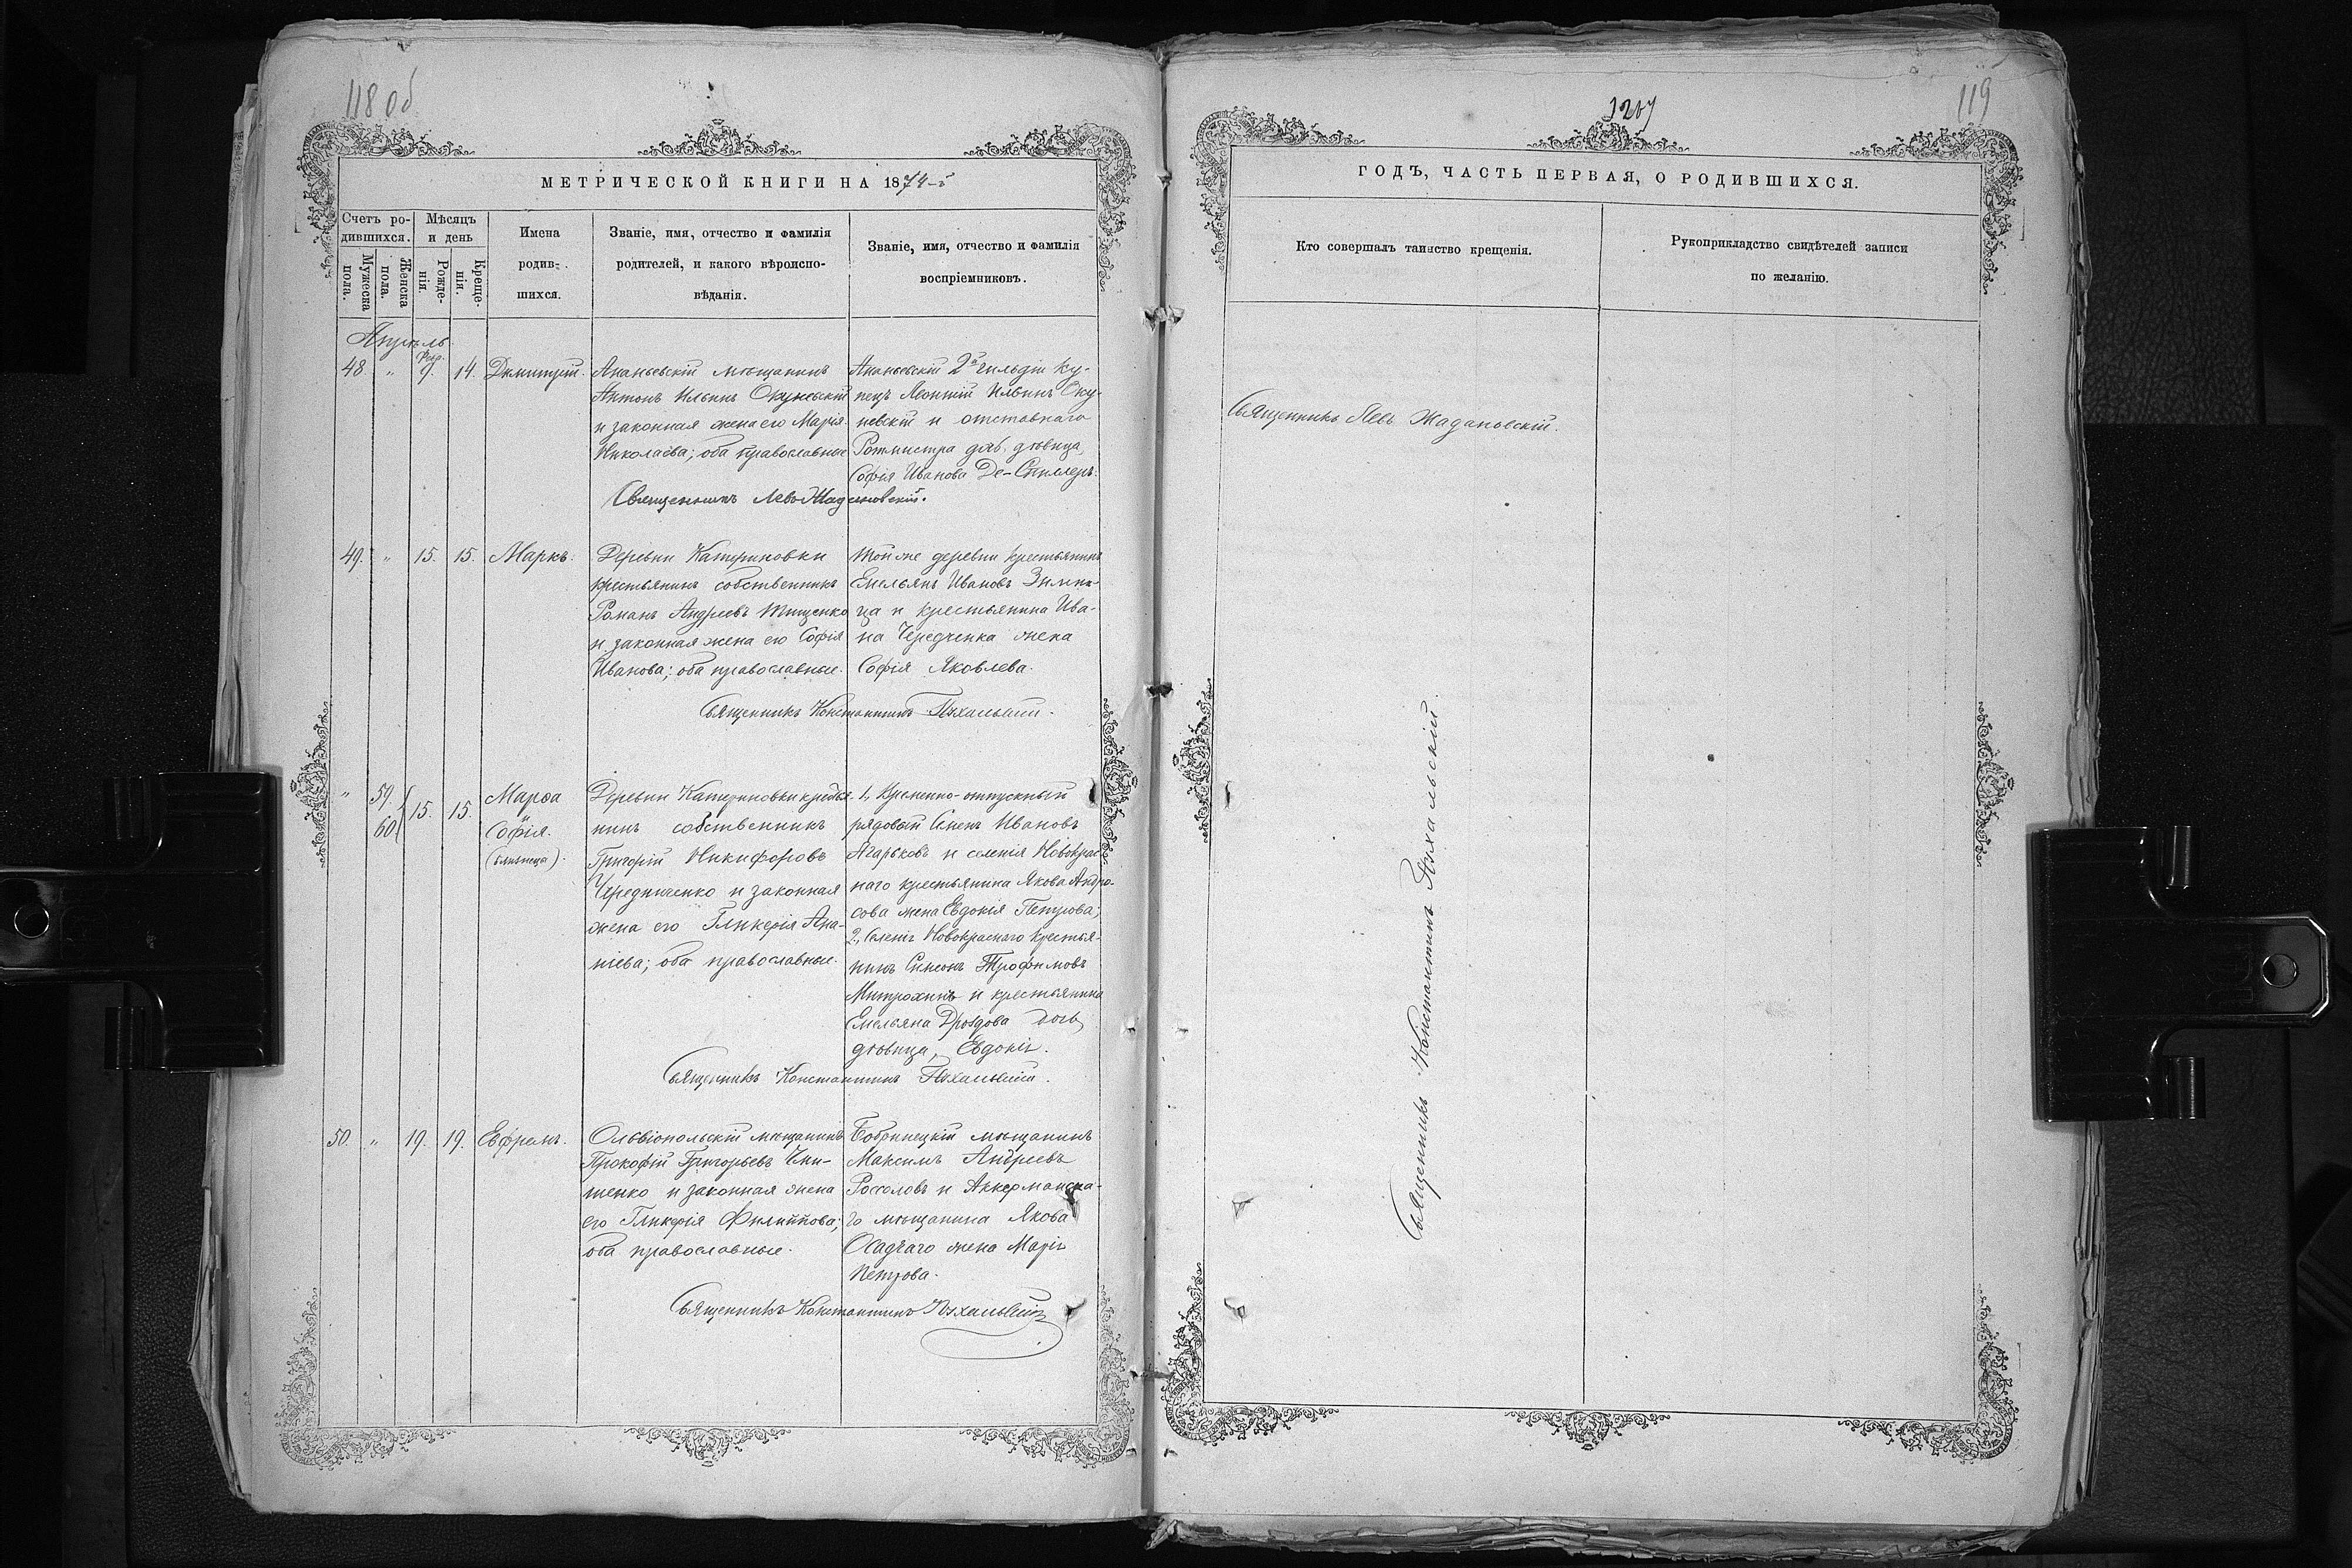 118 об
МЕТРИЧЕСКОЙ КНИГИ НА 1874-й
Счетъ ро-
дившихся.
Мужеска
пола.
Женска
пола.
Мѣсяцъ
и день
Рожде-
нія.
Креще-
нія.
Имена
родив-
шихся.
Званіе, имя, отчество и фамилія
родителей, и какого вѣроиспо-
вѣданія.
Званіе, имя, отчество и фамилія
воспріемниковъ.
Апрель
48 " Февр. 9. 14. Димитрій.
Ананьевскій мѣщанинъ
Антонъ Ильинъ Окуневскій
и законная жена его Марія
Николаева; оба православные
Ананьевскій 2й гильдіи ку-
пецъ Леонтій Ильинъ Оку-
невскій и отставнаго
Ротмистра дочь, дѣвица,
Софія Иванова Де-
Священникъ Левъ Жадановскій.
49. " 15. 15. Маркъ.
Деревни Катериновки
крестьянинъ собственникъ
Романъ Андреевъ Тищенко
и законная жена его Софія
Иванова; оба православные.
Той же деревни крестьянинъ
Емельянъ Ивановъ Зимни-
ца и крестьянина Ива-
на Чередченка жена
Софія Яковлева.
Священникъ Константинъ Пухальскій.
" 59. 60 15. 15. Марѳа
и
Софія.
(близнецы).
Деревни Катериновки крестья-
нинъ собственникъ
Григорій Никифоровъ
Чередниченко и законная
жена его Гликерія Ана-
ніева; оба православные.
1, Временно-отпускный
рядовый Семенъ Ивановъ
Агарковъ и селенія Новокрас-
наго крестьянина Якова Андро-
сова жена Евдокія Петрова;
2, Селенія Новокраснаго крестья-
нинъ Симеонъ Трофимовъ
Митрохинъ и крестьянина
Емельяна Дроздова дочь
дѣвица, Евдокія.
Священникъ Константинъ Пухальскій.
50. " 19. 19. Ефремъ.
Ольвіопольскій мѣщанинъ
Прокофій Григорьевъ
и законная жена
его Гликерія Филиппова;
оба православные.
Бобринецкій мѣщанинъ
Максимъ Андреевъ
Россоловъ и Аккерманска-
го мѣщанина Якова
Осадчаго жена Марія
Петрова.
Священникъ Константинъ Пухальскій
119
ГОДЪ, ЧАСТЬ ПЕРВАЯ, О РОДИВШИХСЯ.
Кто совершалъ таинство крещенія.
Рукоприкладство свидѣтелей записи
по желанію.
Священникъ Левъ Жадановскій.
Священникъ Константинъ Пухальскій